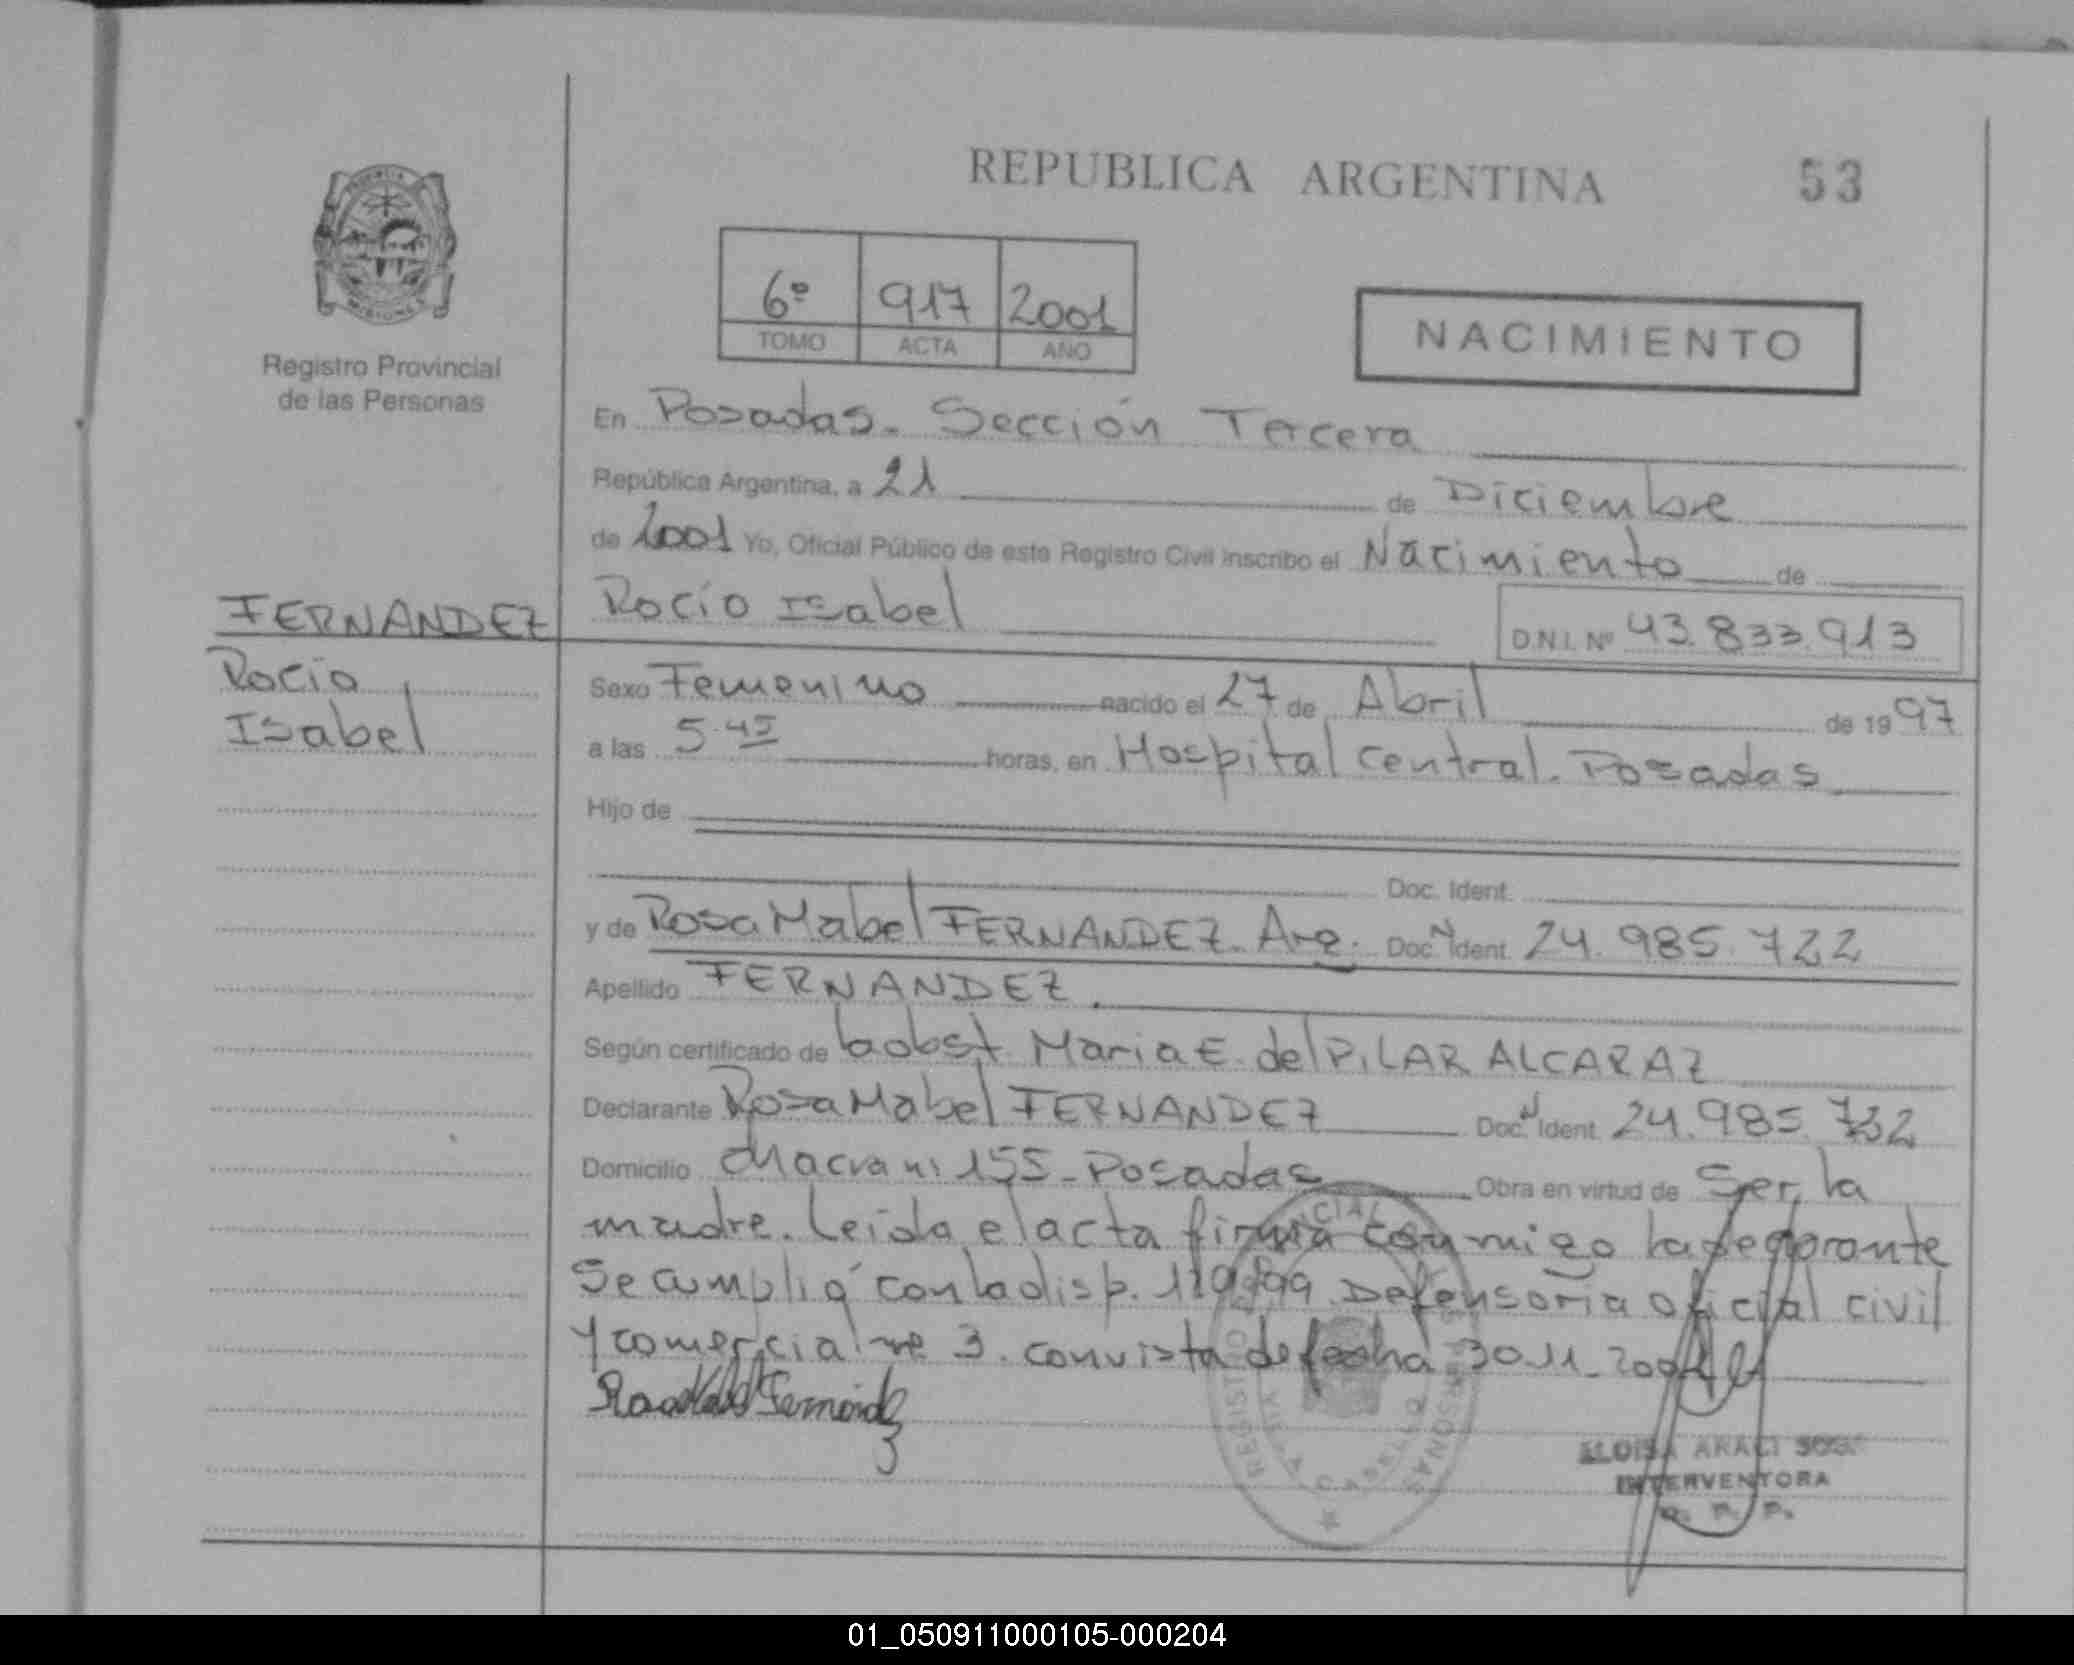 REPUBLICA ARGENTINA 53
PROVINCIA
MISIONES
Registro Provincial
de las Personas
6º 917 2001
TOMO ACTA AÑO
NACIMIENTO
En Posadas. Sección Tercera
República Argentina, a 21 de Diciembre
de 2001 Yo, Oficial Público de este Registro Civil inscribo el Nacimiento de
FERNANDEZ Rocío Isabel D.N.I. Nº 43.833.913
Rocío
Isabel
Sexo Femenino nacido el 27 de Abril de 1997
a las 5.45 horas, en Hospital Central. Posadas
Hijo de
Doc. Ident.
y de Rosa Mabel FERNANDEZ. Arg. Doc. N Ident. 24.985.722
Apellido FERNANDEZ.
Según certificado de la obst. Maria E. del PILAR ALCARAZ
Declarante Rosa Mabel FERNANDEZ Doc. N Ident. 24.985.722
Domicilio 155 - Posadas Obra en virtud de Ser la
madre. Leída el acta firma conmigo la declarante
Se cumplió con la disp. Defensoría oficial civil
y comercial nº 3. con vista de fecha 30.11.2001
Fernández
ELOISA ARACI
INTERVENTORA
R. P. P.
01_050911000105-000204